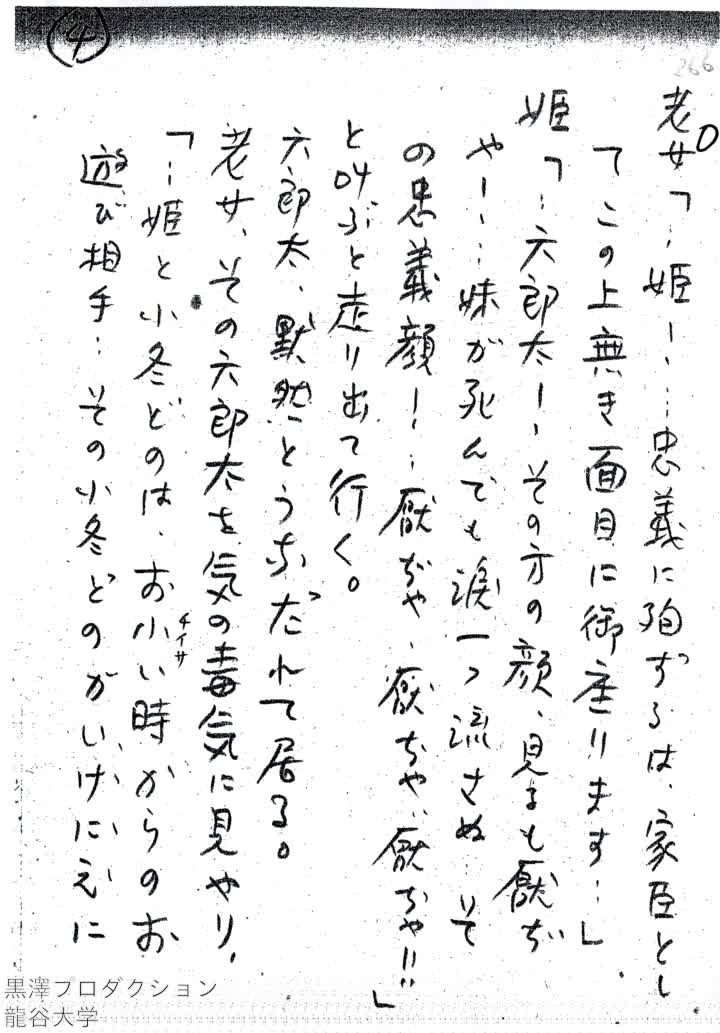 ④
266
老女「‥姫！‥‥忠義に殉ずるは、家臣とし
てこの上無き面目に御座ります‥」
姫「‥六郎太！‥その方の顔、見るも厭ぢ
や！‥‥妹が死んでも涙一つ流さぬ‥
の忠義顔！‥厭ぢや、厭ぢや、厭ぢや!!」
と叫ぶと走り出て行く。
六郎太、黙然とうなだれて居る。
老女、その六郎太を気の毒気に見やり、
「‥姫と小冬どのは、お小い時からのお
チイサ
遊び相手‥その小冬どのがいけにえに
黒澤プロダクション
龍谷大学